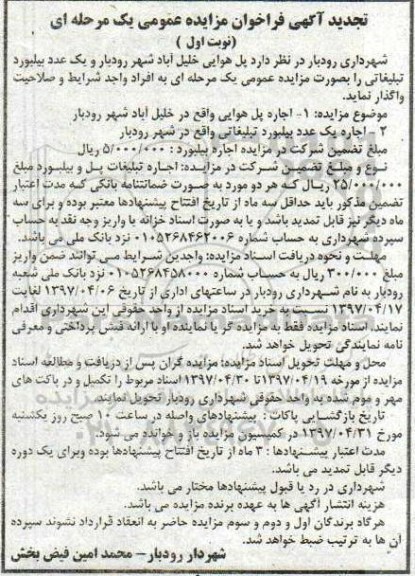 تجدید آگهی فراخوان مزایده عمومی یک مرحله ای
(نوبت اول )
شهرداری رودبار در نظر دارد پل هوایی خلیل آباد شهر رودبار و یک عدد بیلبورد
تبلیغاتی را بصورت مزایده عمومی یک مرحله ای به افراد واجد شرایط و صلاحیت
واگذار نماید.
موضوع مزایده: ۱- اجاره پل هوایی واقع در خلیل آباد شهر رودبار
۲ - اجاره یک عدد بیلبورد تبلیغاتی واقع در شهر رودبار
مبلغ تضمین شرکت در مزایده اجاره بیلبورد : ۵/۰۰۰/۰۰۰ ریال
نوع و مبلغ تضمین شرکت در مزایده: اجاره تبلیغات پل و بیلبورد مبلغ
۲۵/۰۰۰/۰۰۰ ریال که هر دو مورد به صورت ضمانتنامه بانکی که مدت اعتبار
تضمین مذکور باید حداقل سه ماه از تاریخ افتتاح پیشنهادها معتبر بوده و برای سه
ماه دیگر نیز قابل تمدید باشد و یا به صورت اسناد خزانه یا واریز وجه نقد به حساب
سپرده شهرداری به حساب شماره ۰۱۰۵۲۶۸۴۶۲۰۰۶ نزد بانک ملی می باشد.
مهلت و نحوه دریافت اسناد مزایده: واجدین شرایط می توانند ضمن واریز
مبلغ ۳۰۰/۰۰۰ ریال به حساب شماره ۰۱۰۵۲۶۸۴۵۸۰۰۰ نزد بانک ملی شعبه
رودبار به نام شهرداری رودبار در ساعتهای اداری از تاریخ ۱۳۹۷/۰۴/۰۶ لغایت
۱۳۹۷/۰۴/۱۷ نسبت به خرید اسناد مزایده از واحد حقوقی این شهرداری اقدام
نمایند. اسناد مزایده فقط به مزایده گر یا نماینده او با ارائه فیش پرداختی و معرفی
نامه نمایندگی تحویل خواهد شد.
محل و مهلت تحویل اسناد مزایده: مزایده گران پس از دریافت و مطالعه اسناد
مزایده از مورخه ۱۳۹۷/۰۴/۱۹ تا ۱۳۹۷/۰۴/۳۰ اسناد مربوط را تکمیل و در پاکت های
مهر و موم شده به واحد حقوقی شهرداری رودبار تحویل نمایند.
تاریخ بازگشایی پاکات : پیشنهادهای واصله در ساعت ۱۰ صبح روز یکشنبه
مورخ ۱۳۹۷/۰۴/۳۱ در کمیسیون مزایده باز و خوانده می شود.
مدت اعتبار پیشنهادها : ۳ ماه از تاریخ افتتاح پیشنهادها بوده وبرای یک دوره
دیگر قابل تمدید می باشد.
شهرداری در رد یا قبول پیشنهادها مختار می باشد.
هزینه انتشار آگهی ها به عهده برنده مزایده می باشد.
هرگاه برندگان اول و دوم و سوم مزایده حاضر به انعقاد قرارداد نشوند سپرده
آن ها به ترتیب ضبط خواهد شد.
شهردار رودبار – محمد امین فیض بخش